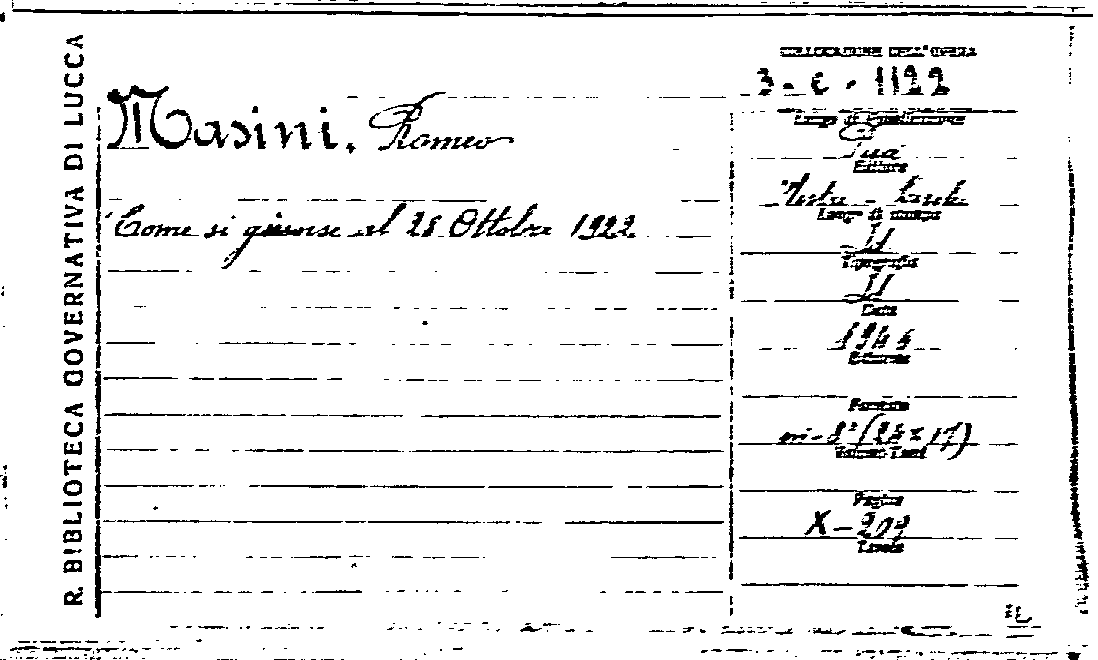 R. BIBLIOTECA GOVERNATIVA DI LUCCA
Masini, Romeo
Come si giunse al 28 Ottobre 1922
COLLOCAZIONE DELL'OPERA
3 - C - 1122
Luogo di Pubblicazione
Pisa
Editore
Luogo di stampa
Id
Tipografia
Id
Data
Edizione
Formato
in-8° (24 x 17)
Volumi-Tomi
Pagine
X - 209
Tavole